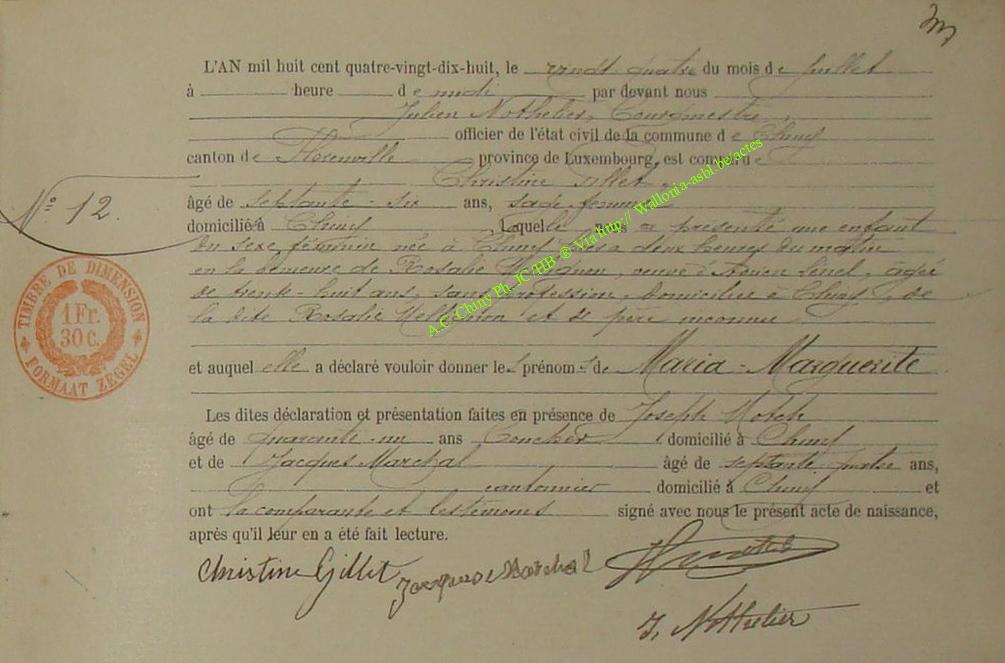 L'AN mil huit cent quatre-vingt-dix-huit, le vingt quatre du mois de Juillet
à heure de midi par devant nous
Julien Nothelier, Bourgmestre,
officier de l'état civil de la commune de Chiny
canton de Florenville province de Luxembourg, est comparue
Christine Gillet,
N° 12.
âgé de septante-six ans, sage femme
domicilié à Chiny Laquelle nous a présenté une enfant
du sexe féminin née à Chiny à deux heures du matin
en la demeure de Rosalie veuve âgée
de trente-huit ans, sans profession, domiciliée à Chiny, de
la dite Rosalie et de père inconnu
TIMBRE DE DIMENSION
1 Fr.
30 C.
FORMAAT ZEGEL
et auquel elle a déclaré vouloir donner les prénoms de Maria-Marguerite
Les dites déclaration et présentation faites en présence de Joseph
âgé de quarante-un ans domicilié à Chiny
et de Jacques Marchal âgé de septante quatre ans,
cantonnier domicilié à Chiny et
ont la comparante et les témoins signé avec nous le présent acte de naissance,
après qu'il leur en a été fait lecture.
Christine Gillet Jacques Marchal
J. Nothelier
A.C. Chiny Ph. JC HB ® Via http:// Wallonia-asbl.be/actes